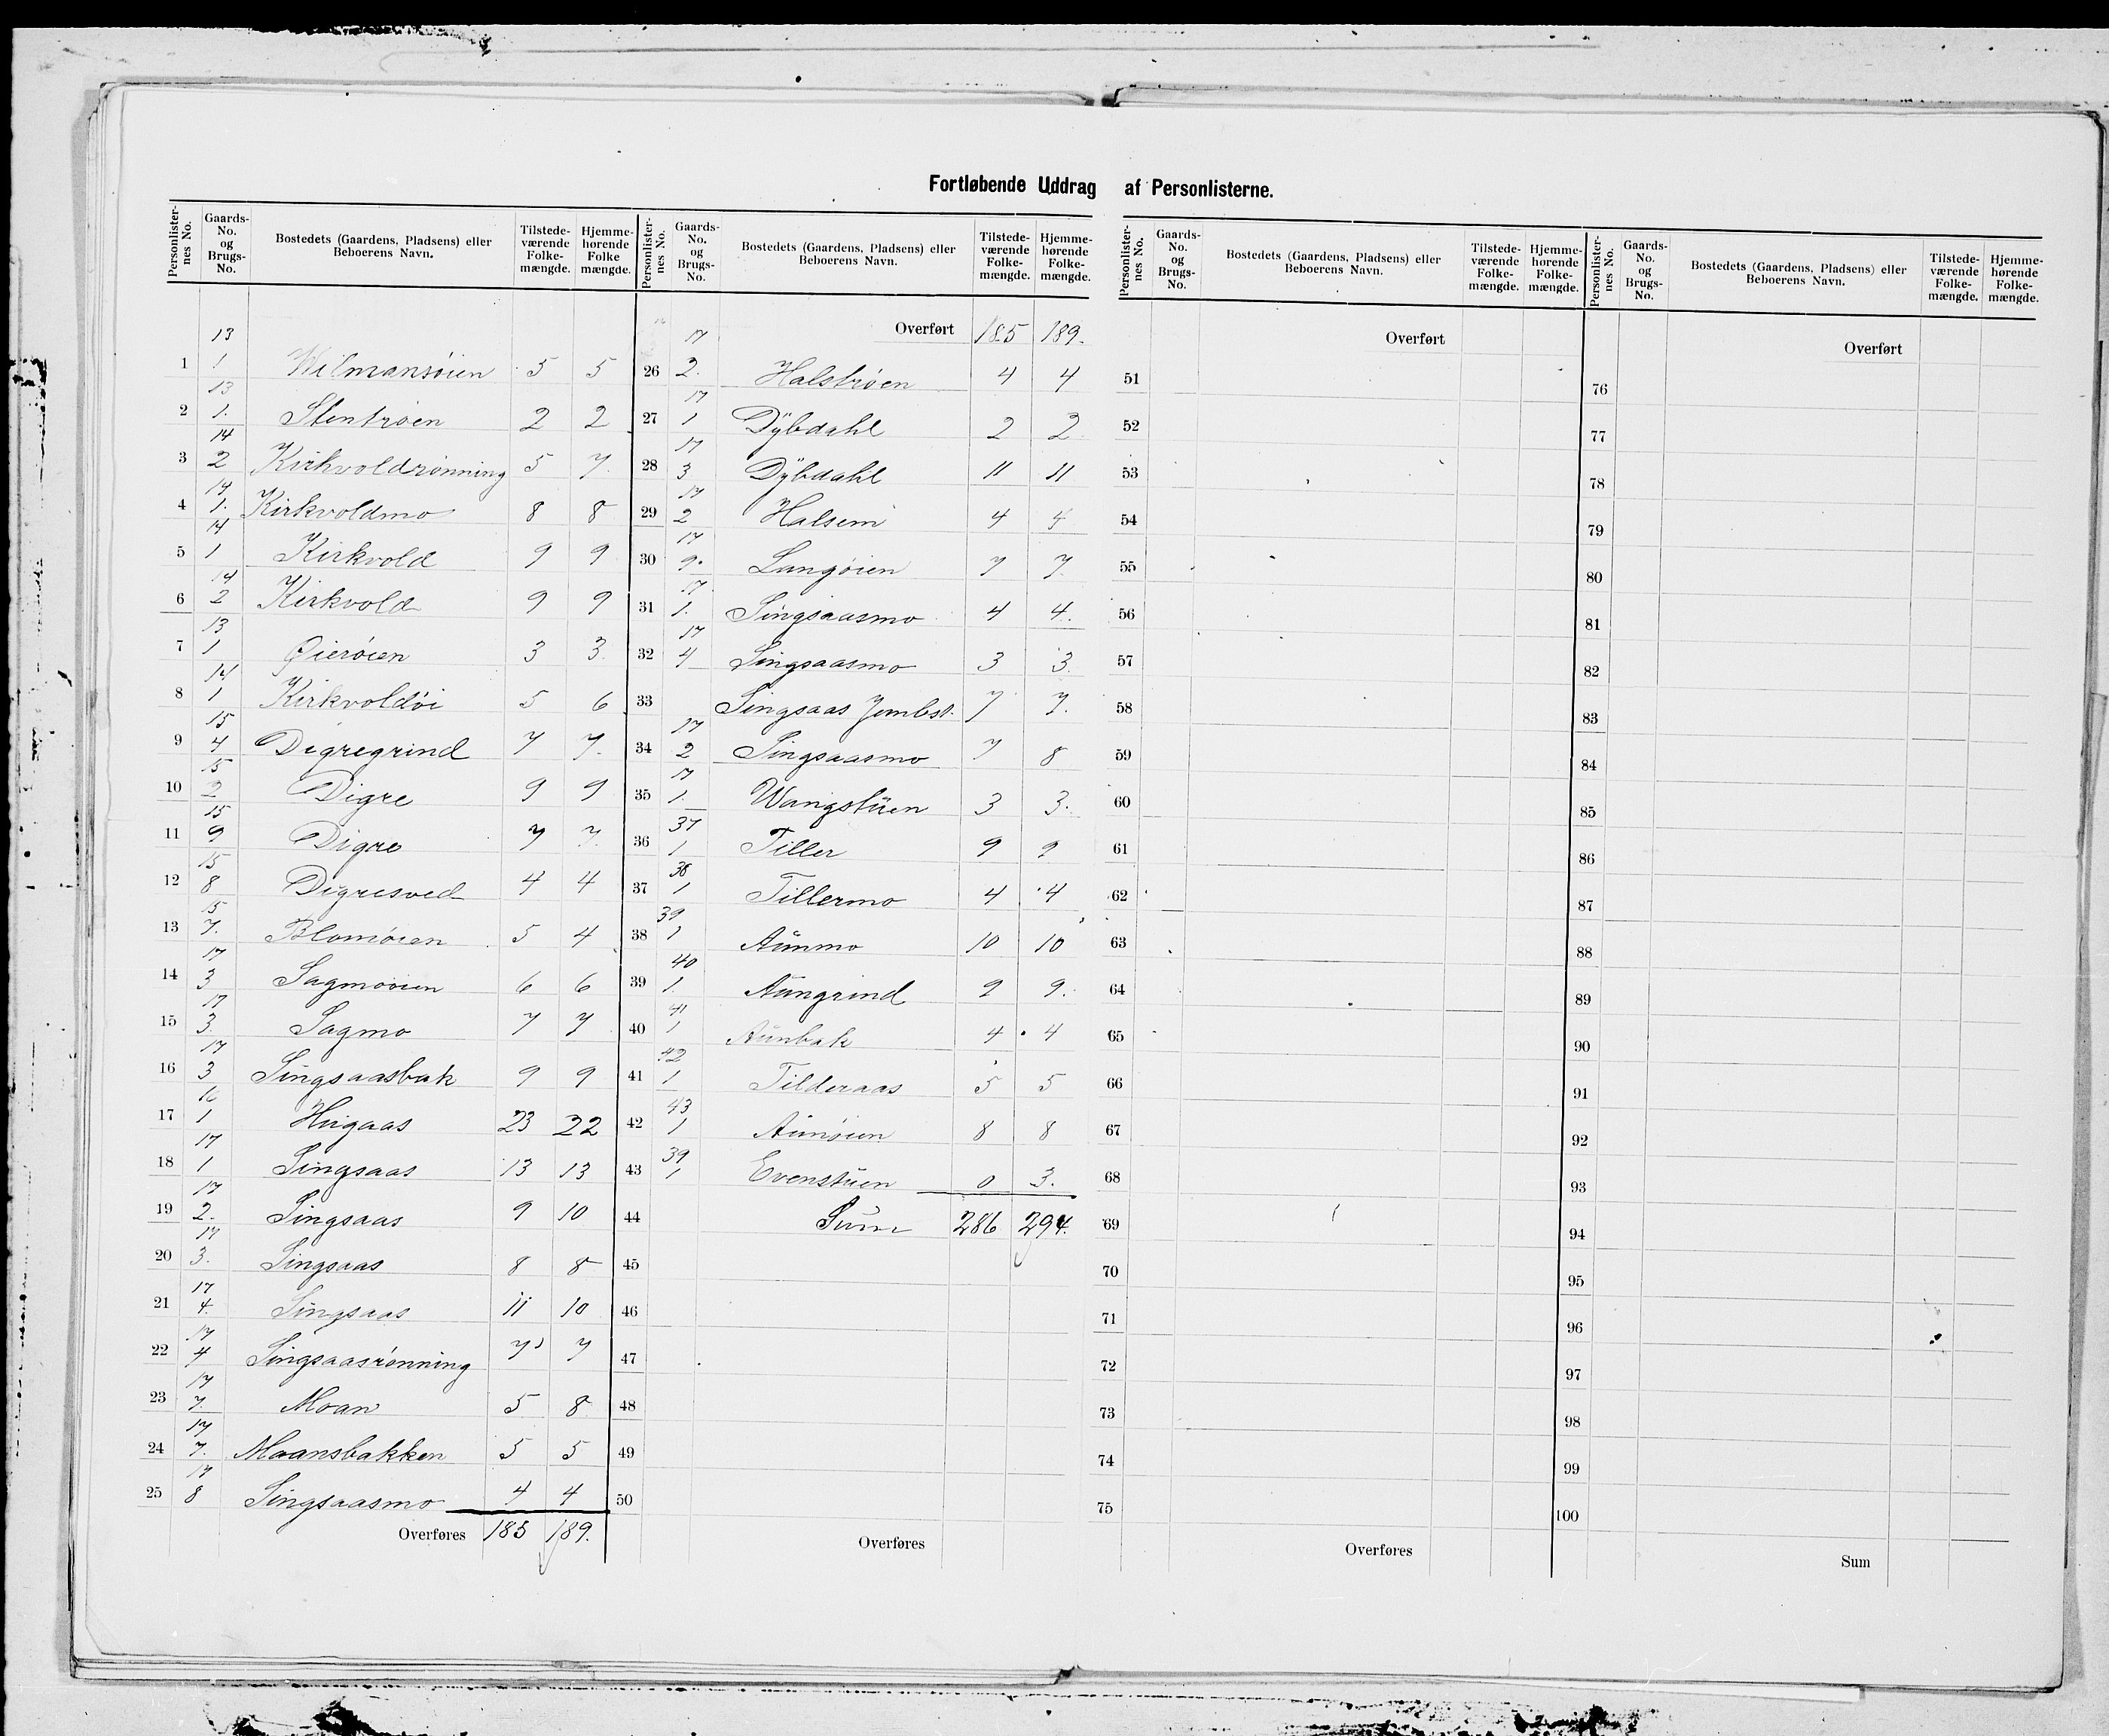 Fortløbende Uddrag af Personlisterne.
Personlister-nes No. Gaards-No. og Brugs-No. Bostedets (Gaardens, Pladsens) eller Beboerens Navn. Tilstede-værende Folke-mængde. Hjemme-hørende Folke mængde.
13
1 1 Wilmansøien 5 5
13
2 1. Stentrøen 2 2
14
3 2 Kirkvoldrønning 5 7.
14
4 1. Kirkvoldmo 8 8
14
5 1 Kirkvold 9 9
14
6 2 Kirkvold 9 9
13
7 1 Gierøien 3 3
14
8 1 Kirkvoldøi 5 6
15
9 4 Digregrind 7 7.
15
10 2 Digre 9 9
15
11 9 Digre 7 7.
15
12 8 Digresved 4 4
15
13 7. Blomøien 5 4
17
14 3 Sagmoøien 6 6
17
15 3. Sagmo 7 7
17
16 3 Singsaasbak 9 9
16
17 1 Hugaas 23 22
17
18 1 Singsaas 13 13
17
19 2. Singsaas 9 10
17
20 3. Singsaas 8 8
17
21 4. Singsaas 11 10
17
22 4 Singsaasrønning 7 7
17
23 7. Moan 5 8
17
24 7. Moansbakken 5 5
17
25 8 Singsaasmo 4 4
Overføres 185 189.
Personlister-nes No. Gaards-No. og Brugs-No. Bostedets (Gaardens, Pladsens) eller Beboerens Navn. Tilstede-værende Folke-mængde. Hjemme-hørende Folke-mængde.
Overført 185 189.
17
26 2. Halstrøen 4 4
17
27 1 Dÿbdahl 2 2
17
28 3 Dÿbdahl 11 11
17
29 2 Halsem 4 4
17
30 9. Langøien 7 7.
17
31 1. Singsaasmo 4 4.
17
32 4 Singsaasmo 3 3.
33 Singsaas Jernbst. 7 7.
17
34 2 Singsaasmo 7 8
17
35 1. Wangstŭen 3 3.
37
36 1 Tiller 9 9
38
37 1 Tillermo 4 4
39
38 1 Aŭnmo 10 10
40
39 1. Aŭngrind 9 9.
41
40 1 Aŭnbak 4 4
42
41 1 Tilderaas 5 5
43
42 1 Aŭnøien 8 8
39
43 1 Evenstŭen 0 3.
44 Sŭm 286 294.
45
46
47
48
49
50
Overføres
Personlister-nes No. Gaards-No. og Brugs-No. Bostedets (Gaardens, Pladsens) eller Beboerens Navn. Tilstede-værende Folke-mængde. Hjemme-hørende Folke-mængde.
Overført
51
52
53
54
55
56
57
58
59
60
61
62
63
64
65
66
67
68
69
70
71
72
73
74
75
Overføres
Personlister-nes No. Gaards-No. og Brugs-No. Bostedets (Gaardens, Pladsens) eller Beboerens Navn. Tilstede-værende Folke-mængde. Hjemme-hørende Folke-mængde.
Overført
76
77
78
79
80
81
82
83
84
85
86
87
88
89
90
91
92
93
94
95
96
97
98
99
100
Sum